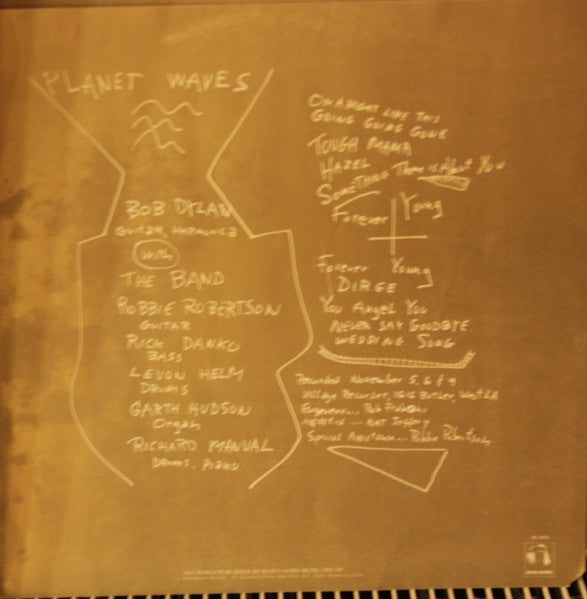 PLANET WAVES
BOB DYLAN
GUITAR, HARMONICA
with
THE BAND
ROBBIE ROBERTSON
GUITAR
RICK DANKO
BASS
LEVON HELM
DRUMS
GARTH HUDSON
Organ
RICHARD MANUAL
DRUMS, PIANO
ON A NIGHT LIKE THIS
GOING GOING GONE
TOUGH MAMA
HAZEL
SOMETHING There is About You
Forever Young
Forever Young
DIRGE
You Angel You
NEVER SAY GOODBYE
WEDDING SONG
Recorded November 5, 6 & 9
Village Recorder, 1616 BUTLER, West LA
Engineer... Rob Fraboni
Nat Jeffery
Special Assistance... Robbie Robertson